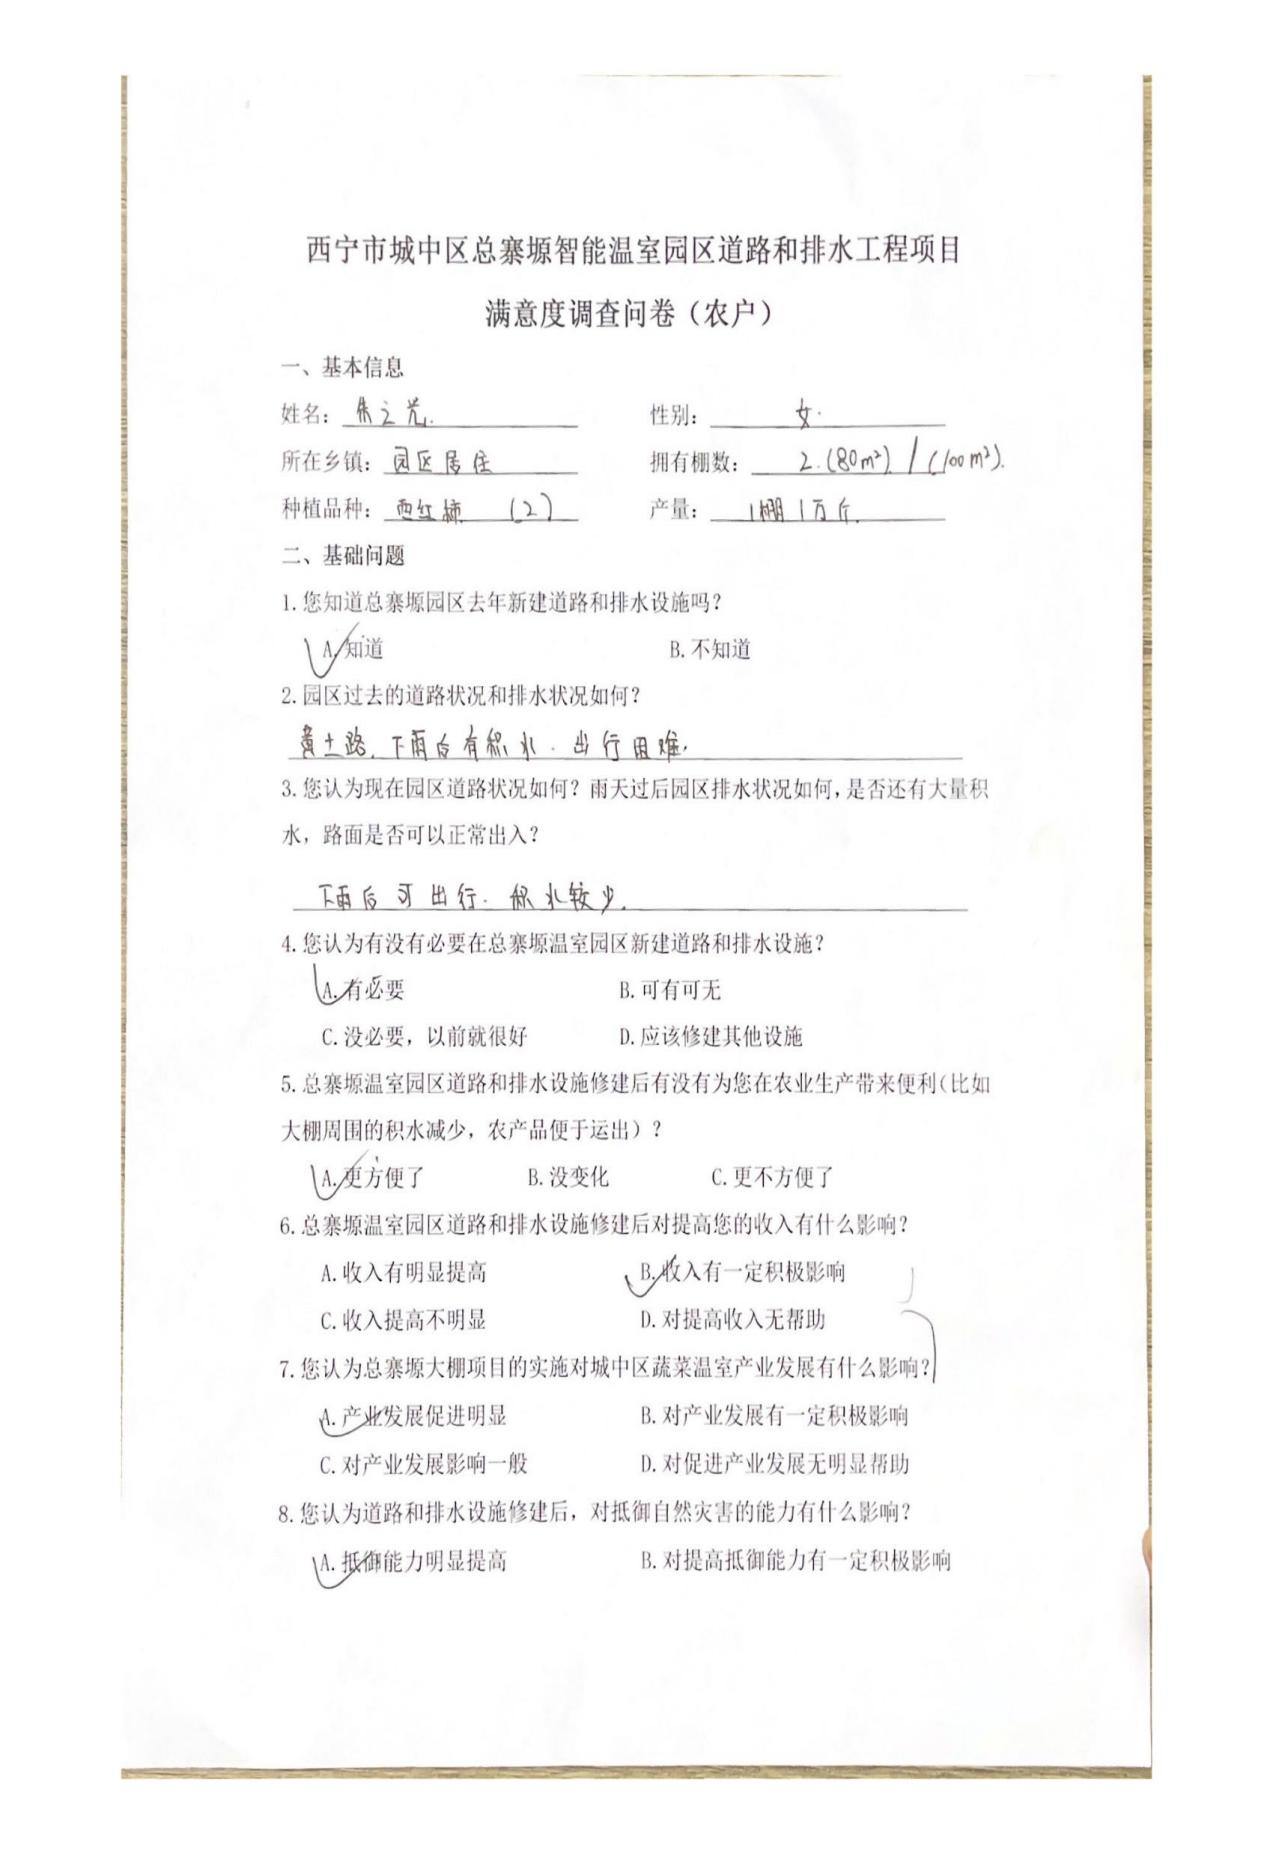 西宁市城中区总寨塬智能温室园区道路和排水工程项目
满意度调查问卷（农户）
一、基本信息
姓名：朱之芫. 性别：女.
所在乡镇：园区居住 拥有棚数：2.(80m²) / (100m²).
种植品种：西红柿 (2) 产量：1棚1万斤.
二、基础问题
1.您知道总寨塬园区去年新建道路和排水设施吗？
A.知道 B.不知道
2.园区过去的道路状况和排水状况如何？
黄土路.下雨后有积水.出行困难.
3.您认为现在园区道路状况如何？雨天过后园区排水状况如何，是否还有大量积
水，路面是否可以正常出入？
下雨后可出行.积水较少.
4.您认为有没有必要在总寨塬温室园区新建道路和排水设施？
A.有必要 B.可有可无
C.没必要，以前就很好 D.应该修建其他设施
5.总寨塬温室园区道路和排水设施修建后有没有为您在农业生产带来便利（比如
大棚周围的积水减少，农产品便于运出）？
A.更方便了 B.没变化 C.更不方便了
6.总寨塬温室园区道路和排水设施修建后对提高您的收入有什么影响？
A.收入有明显提高 B.收入有一定积极影响
C.收入提高不明显 D.对提高收入无帮助
7.您认为总寨塬大棚项目的实施对城中区蔬菜温室产业发展有什么影响？
A.产业发展促进明显 B.对产业发展有一定积极影响
C.对产业发展影响一般 D.对促进产业发展无明显帮助
8.您认为道路和排水设施修建后，对抵御自然灾害的能力有什么影响？
A.抵御能力明显提高 B.对提高抵御能力有一定积极影响